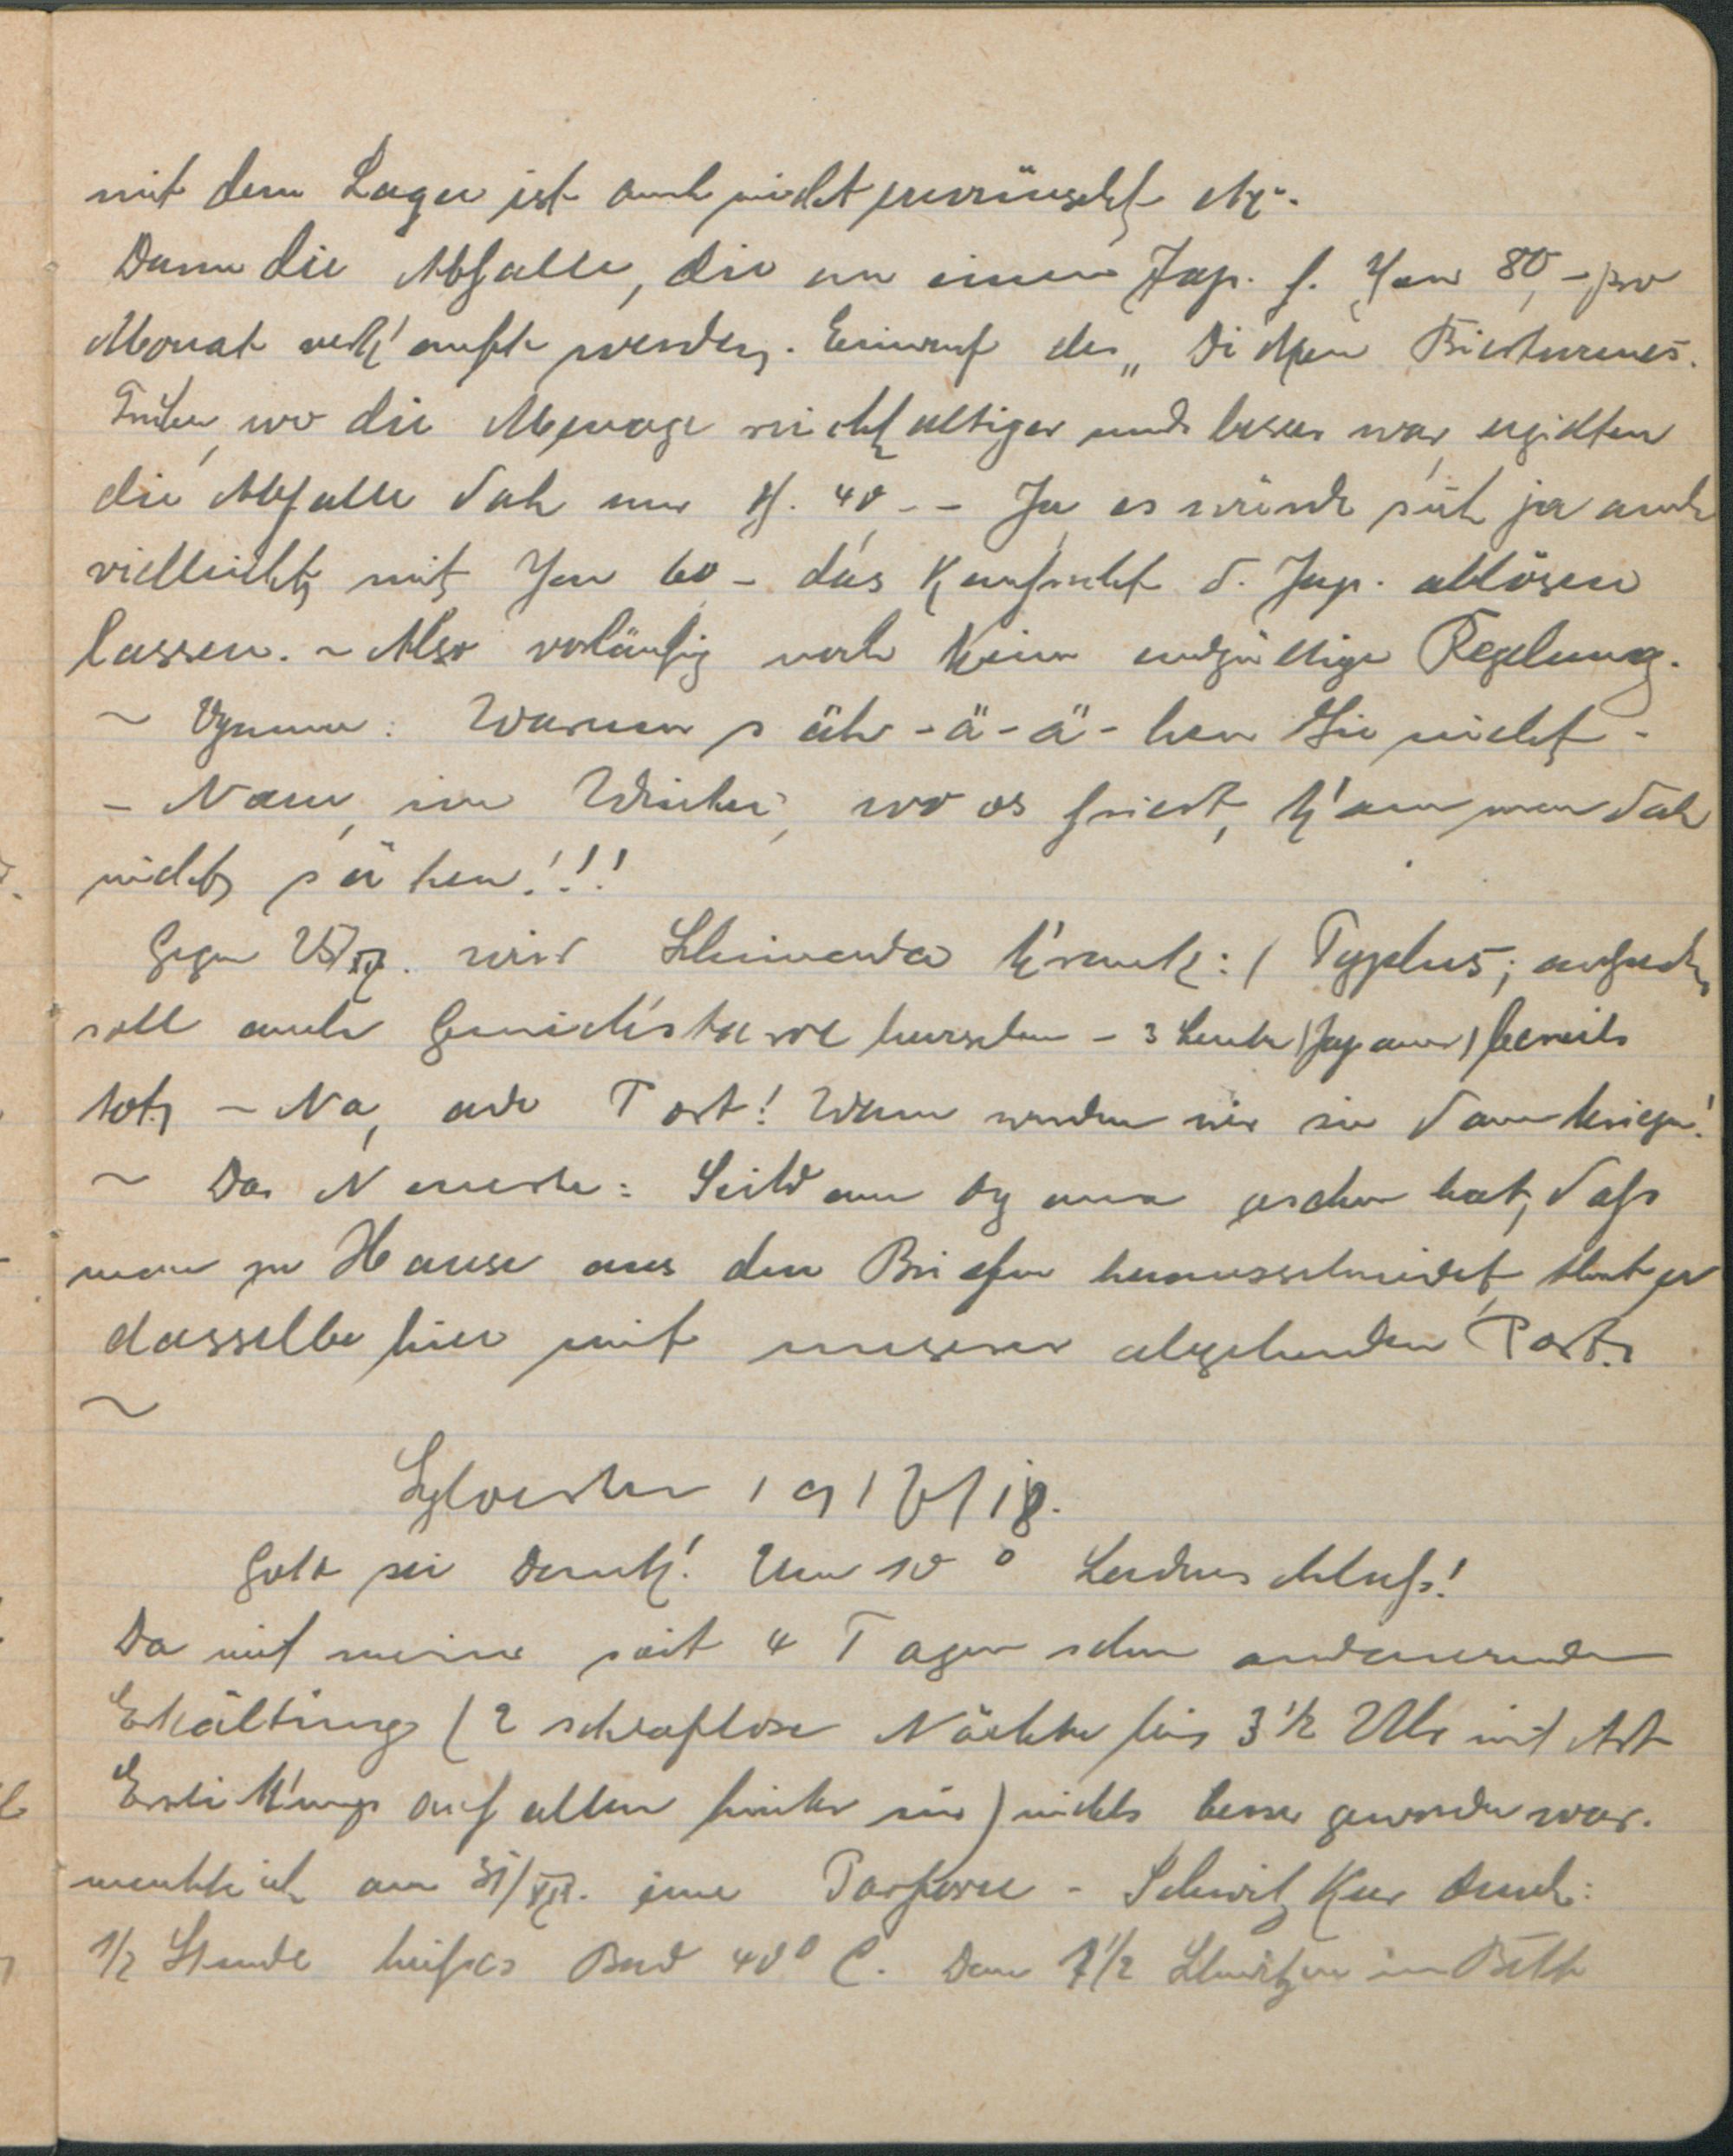 mit dem Lager ist auch nicht erwünscht etc.
Dann die Abfälle, die an einen Jap. f. Yen 80,- pro
Monat verkauft werden. Einwurf des „Dicken
Früher, wo die Menage reichhaltiger und besser war, erzielten
die Abfälle doch nur Y. 40,- - Ja, es würde sich ja auch
vielleicht mit Yen 60 - das Kaufrecht d. Jap. ablösen
lassen. ~ Also vorläufig noch keine endgültige Regelung.
~ Oyama: Warum säh-ä-ä-hen Sie nicht -
- Nanu, im Winter, wo es friert, kann man doch
nicht sähen!!!
Gegen 25/XII. wird Shimada krank: (Typhus; außerdem
soll auch Genickstarre herrschen - 3 Leute (Japaner) bereits
tot. ~ Na, ade Post! Wann werden wir sie dann kriegen!
~ Das Neueste: Seitdem Oyama gesehen hat, daß
man zu Hause aus den Briefen herausschneidet, thut er
dasselbe hier mit unserer abgehenden Post.
~
Sylvester 1917/18.
Gott sei Dank! Um 10° Ladenschluß!
Da mit meiner seit 4 Tagen schon andauernden
Erkältung (2 schlaflose Nächte bis 3 1/2 Uhr mit Art
Erstickungsanfällen hinter mir) nichts besser geworden war,
machte ich am 31/XII. eine Parforce-Schwitzkur durch:
1/2 Stunde heißes Bad 40° C. Dann 1 1/2 Schwitzen im Bett